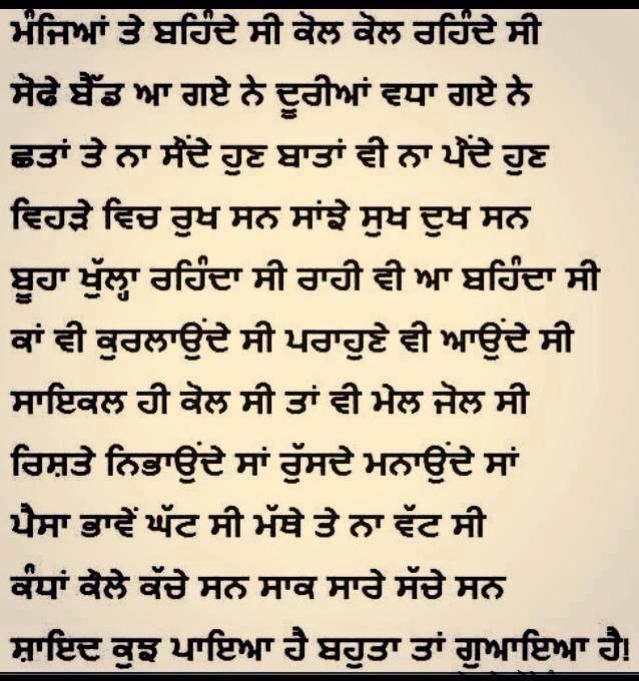 ਮੰਜਿਆਂ ਤੇ ਬਹਿੰਦੇ ਸੀ ਕੋਲ ਕੋਲ ਰਹਿੰਦੇ ਸੀ
ਸੋਫੇ ਬੈੱਡ ਆ ਗਏ ਨੇ ਦੂਰੀਆਂ ਵਧਾ ਗਏ ਨੇ
ਛਤਾਂ ਤੇ ਨਾ ਸੌਂਦੇ ਹੁਣ ਬਾਤਾਂ ਵੀ ਨਾ ਪੌਂਦੇ ਹੁਣ
ਵਿਹੜੇ ਵਿਚ ਰੁਖ ਸਨ ਸਾਂਝੇ ਸੁਖ ਦੁਖ ਸਨ
ਬੂਹਾ ਖੁੱਲ੍ਹਾ ਰਹਿੰਦਾ ਸੀ ਰਾਹੀ ਵੀ ਆ ਬਹਿੰਦਾ ਸੀ
ਕਾਂ ਵੀ ਕੁਰਲਾਉਂਦੇ ਸੀ ਪਰਾਹੁਣੇ ਵੀ ਆਉਂਦੇ ਸੀ
ਸਾਇਕਲ ਹੀ ਕੋਲ ਸੀ ਤਾਂ ਵੀ ਮੇਲ ਜੋਲ ਸੀ
ਰਿਸ਼ਤੇ ਨਿਭਾਉਂਦੇ ਸਾਂ ਰੁੱਸਦੇ ਮਨਾਉਂਦੇ ਸਾਂ
ਪੈਸਾ ਭਾਵੇਂ ਘੱਟ ਸੀ ਮੱਥੇ ਤੇ ਨਾ ਵੱਟ ਸੀ
ਕੰਧਾਂ ਕੌਲੇ ਕੱਚੇ ਸਨ ਸਾਕ ਸਾਰੇ ਸੱਚੇ ਸਨ
ਸ਼ਾਇਦ ਕੁਝ ਪਾਇਆ ਹੈ ਬਹੁਤਾ ਤਾਂ ਗੁਆਇਆ ਹੈ!